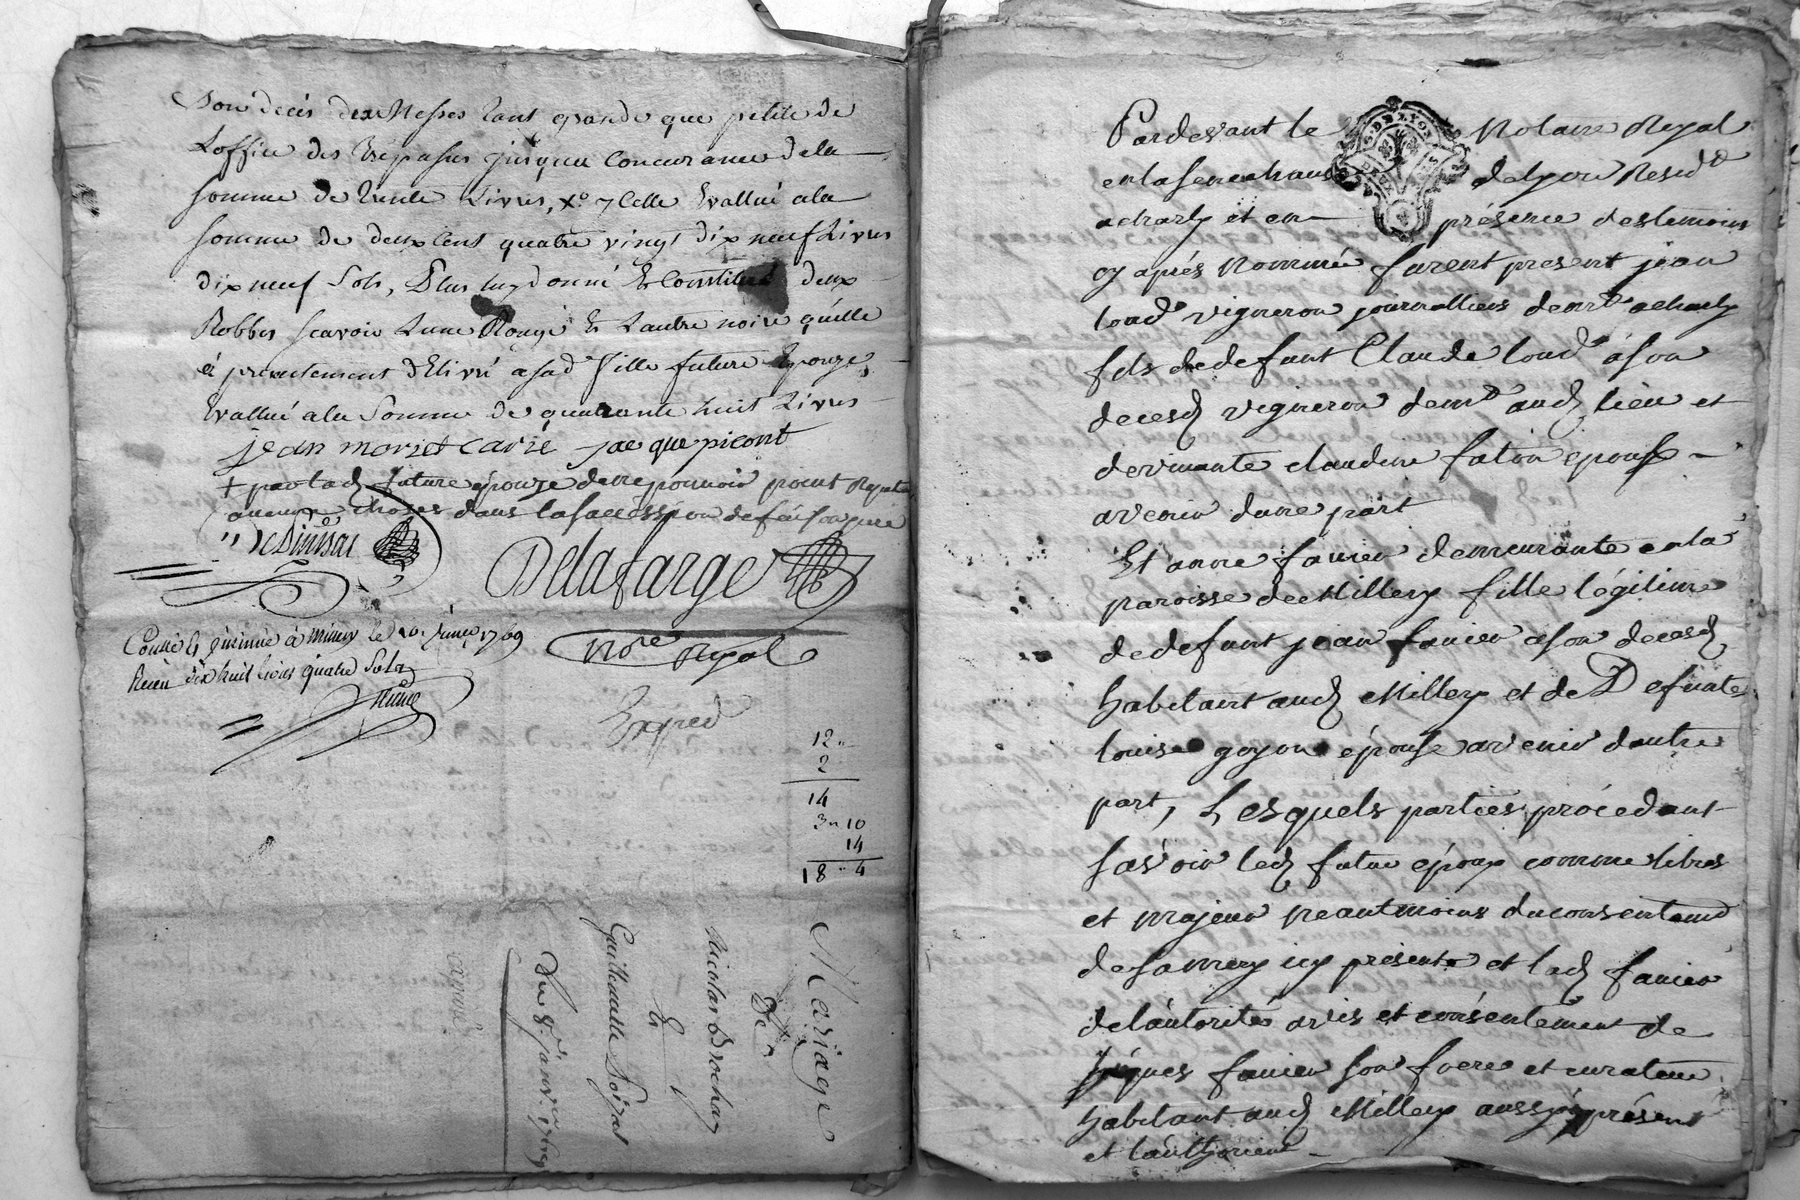 Son decés des Messes tant grande que petite de
L'office des trépassés jusqu'a Concurance de la
somme de trente Livres, Xo. 7 Celle Evallué a la
Somme de deux Cent quatre vingt dix neuf Livres
dix neuf Sols, Plus luy donné Et Constitué deux
Robbes scavoir Lune Rouge Et Lautre noire qu'elle
á presentement dElivré asad fille future Epouze,
Evallué ala Somme de quarante huit Livres
jean morict carié jacque picont
+ par lad future épouze de ne pouvoir
aucune choses dans la succéssion de feu son pere
Delafarge
No.re Royal
Conllé Et jnsinué á mimey le 20. janv 1769
Recu dix huit livres quatre Sols
Exped
12 "
2
14
3 " 10
14
18 " 4
Mariage
De
Nicolas Brochay
Et
Guillemette Loizat
Du 8.e janvier 1769
Pardevant le Notaire Royal
en la senechausé de lyon Resid.t
acharly et en présence des temoins
cy aprés Nommée furent present jean
loud vigneron journalliers demt acharly
fils de defunt Claude loud áson
decesd vigneron demt aud lieu et
de vivante claudine faton epoux
avenir dune part
Et anne favier demeurante en la
paroisse de Millery fille légitime
de defunt jean favier ason decesd
habitant aud Millery et de Defunte
louise goyon épouse avenir dautre
part, Lesquels parties procedant
sas'oir led futur époux comme libres
et majeur neantmoins du consentemt
de sa mery icy présente et lad favier
de l'autorité avis et consentement de
Jaques favier son frere et curateur
habitant aud Millery aussy présent
et l'authorient